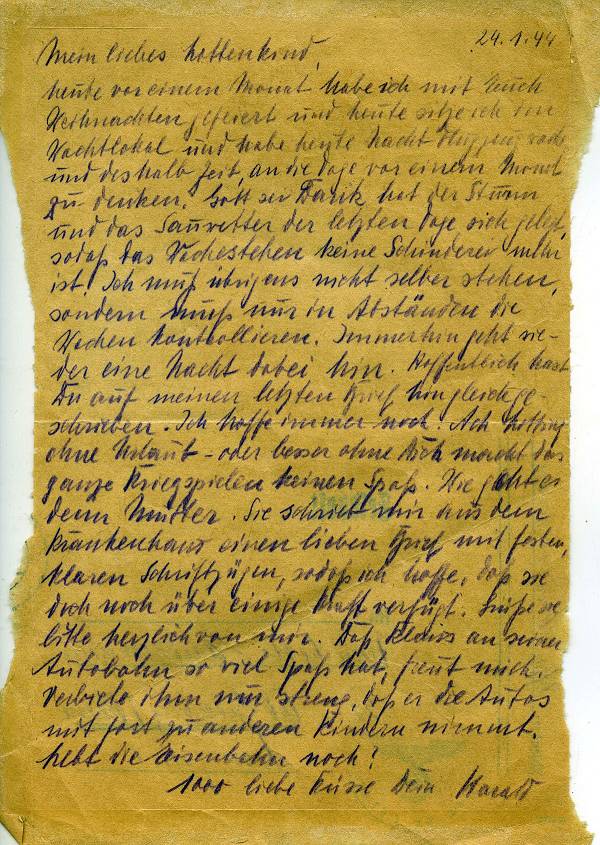 24.1.44
Mein liebes Lottenkind,
heute vor einem Monat habe ich mit Euch
Weihnachten gefeiert und heute sitze ich im
Wachtlokal und habe heute Nacht Flugzeug
und deshalb Zeit, an die Tage vor einem Monat
zu denken. Gott sei Dank hat der Sturm
und das Sauwetter der letzten Tage sich gelegt,
sodaß das Wachestehen keine Schinderei mehr
ist. Ich muß übrigens nicht selber stehen,
sondern muß nur in Abständen die
Wachen kontrollieren. Immerhin geht wie-
der eine Nacht dabei hin. Hoffentlich hast
Du auf meinen letzten Brief hin gleich ge-
schrieben. Ich hoffe immer noch! Ach
ohne Urlaub - oder besser ohne Dich macht das
ganze Kriegspielen keinen Spaß. Wie geht es
denn Mutter. Sie schrieb mir aus dem
Krankenhaus einen lieben Brief mit festen,
klaren Schriftzügen, sodaß ich hoffe, daß sie
doch noch über einige Kraft verfügt. Grüße sie
bitte herzlich von mir. Daß Klaus an seiner
Autobahn so viel Spaß hat, freut mich.
Verbiete ihm nur streng, daß er die Autos
mit fort zu anderen Kindern nimmt.
Lebt die Eisenbahn noch?
1000 liebe Küsse Dein Harald